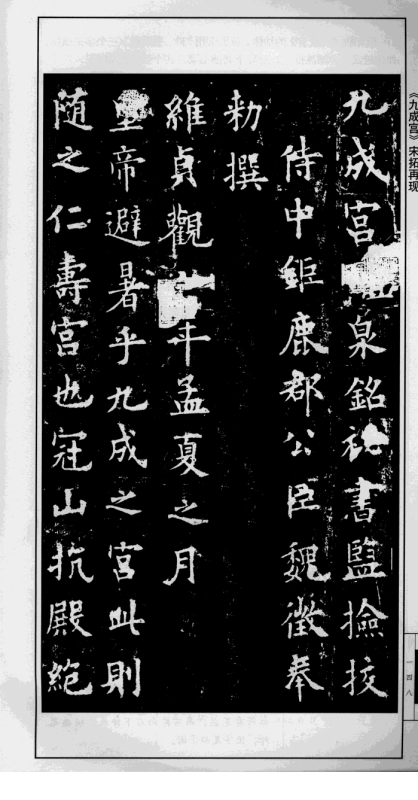 九成宫泉銘祕書監撿挍
侍中鉅鹿郡公臣魏徵奉
勑撰
維貞觀年孟夏之月
皇帝避暑乎九成之宮此則
随之仁壽宮也冠山抗殿絶
《九成宫》宋拓再现
一四八